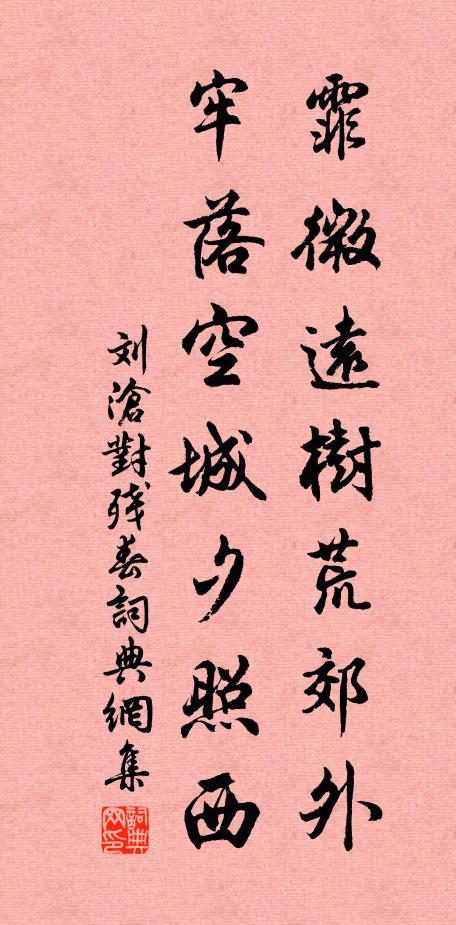 霏微遠樹荒郊外
牢落空城夕照西
刘滄對残春詞典網集
詞典网印